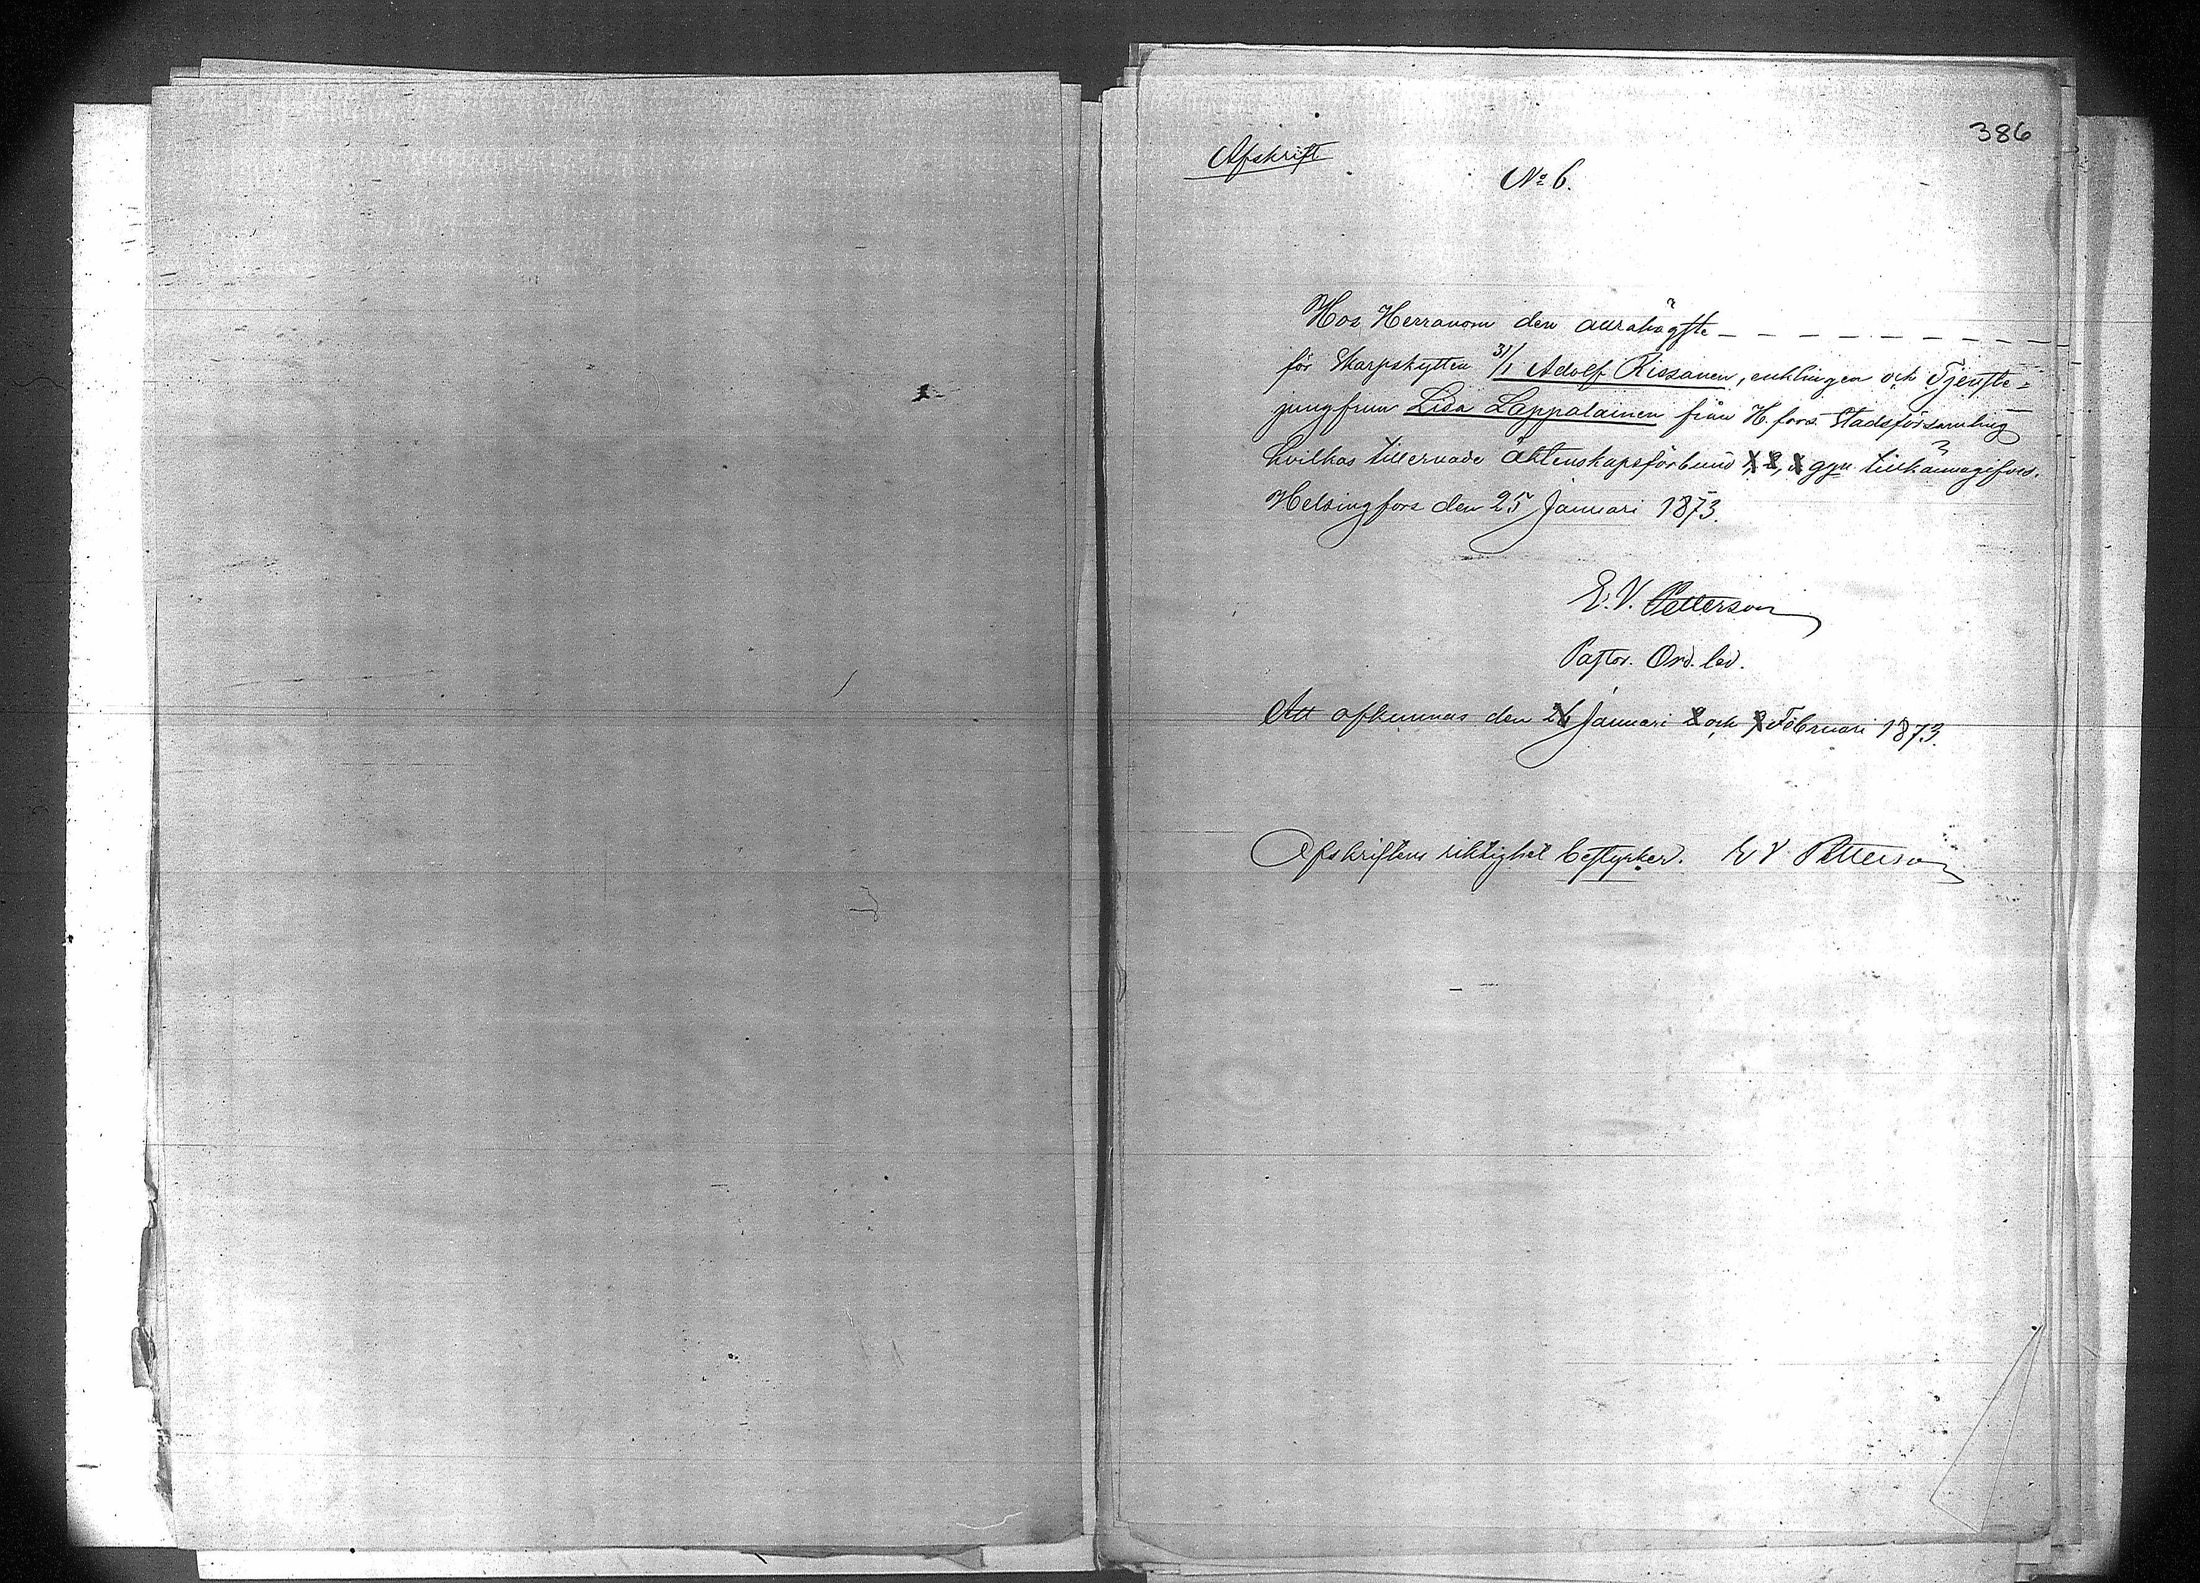 386
Afskrift
No 6.
Hos Herranom den aurahögste – – – – – – –
för Skarpskytten 31/1 Adolf Rissanen, enklingen och Tjenste-
jungfrun Lisa Lappalainen från H.fors Stadsförsamling
hvilkas tillernade äktenskapsförbund 1, 2, 3 ggn tillkännagifves.
Helsingfors den 25 Januari 1873.
E. V. Petterson
Pastor. Ord. led.
Att afkunnas den 26 Januari 2 och 9 Februari 1873.
Afskriftens riktighet bestyrker. E V Petterson